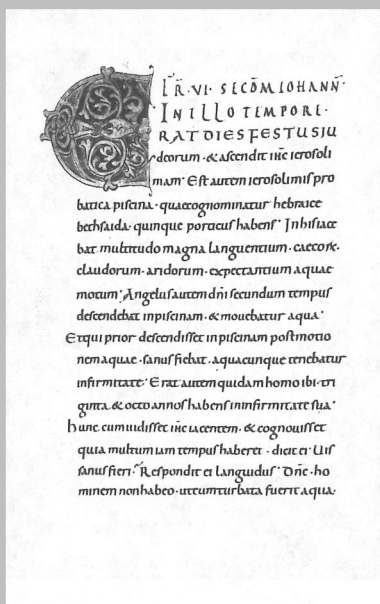 FER̄·VI· SECD̄M IOHANN̄·
IN ILLO TEMPORE·
ERAT DIES FESTUS IU
deorum · & ascendit ihc ierosoli
mam · Est autem ierosolimis pro
batica piscina · quae cognominatur hebraice
bethsaida · quinque porticus habens · In his iace
bat multitudo magna languentium · caecor̄ ·
claudorum · aridorum · expectantium aquae
motum · Angelus autem dn̄i secundum tempus
descendebat in piscinam · & mouebatur aqua ·
Et qui prior descendisset in piscinam post motio
nem aquae · sanus fiebat · a quacunque tenebatur
infirmitate · Erat autem quidam homo ibi · tri
ginta · & octo annos habens in infirmitate sua ·
hunc cum uidisset ihc iacentem · & cognouisset
quia multum iam tempus haberet · dicit ei · Uis
sanus fieri · Respondit ei languidus · Dn̄e · ho
minem non habeo · ut cum turbata fuerit aqua ·